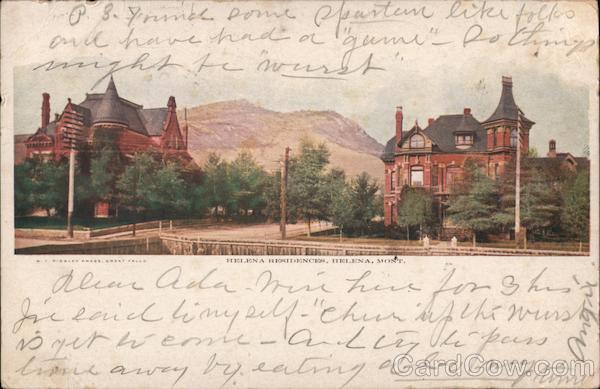 P.S. Found some spartan like folks
and have had a "game" - so things
might be "wurst"
HELENA RESIDENCES, HELENA, MONT.
Dear Ada - We're here for 3 hrs
I've said to myself - "cheer up the wurst
is yet to come - And try to pass
time away by eating
CardCow.com